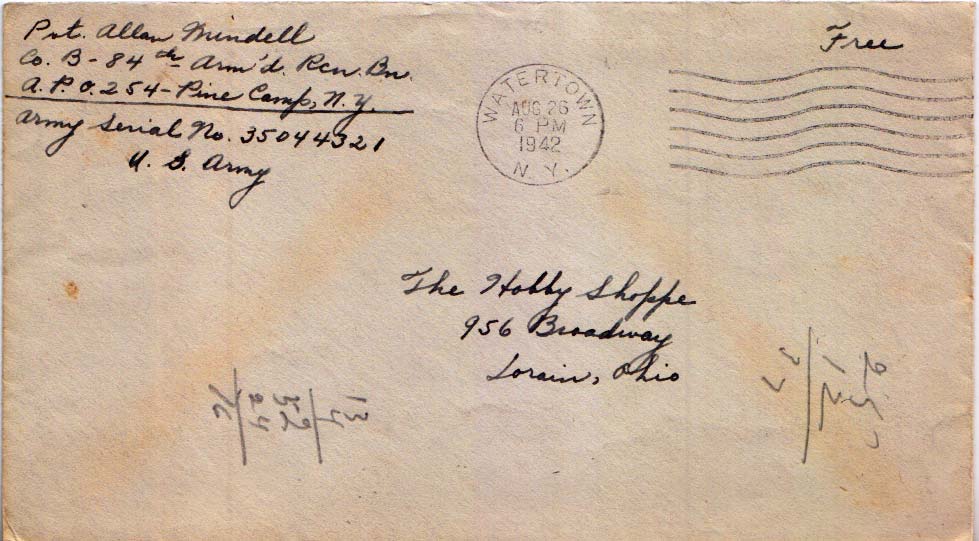 Pvt. Allan Mindell
Co. B - 84th Arm'd. Rcn. Bn.
A.P.O. 254 - Pine Camp, N.Y.
Army Serial No. 35044321
U. S. Army
Free
WATERTOWN
AUG 26
6 PM
1942
N. Y.
The Hobby Shoppe
956 Broadway
Lorain, Ohio
13
4
52
24
76